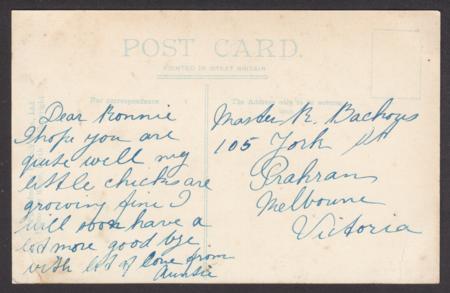 POST CARD.
PRINTED IN GREAT BRITAIN
For correspondence
The Address only to be written
Dear Ronnie
I hope you are
quite well my
little chicks are
growing fine I
will soon have a
lot more good bye
with lot of love from
Auntie
Master R. Backous
105 York St
Prahran
Melbourne
Victoria